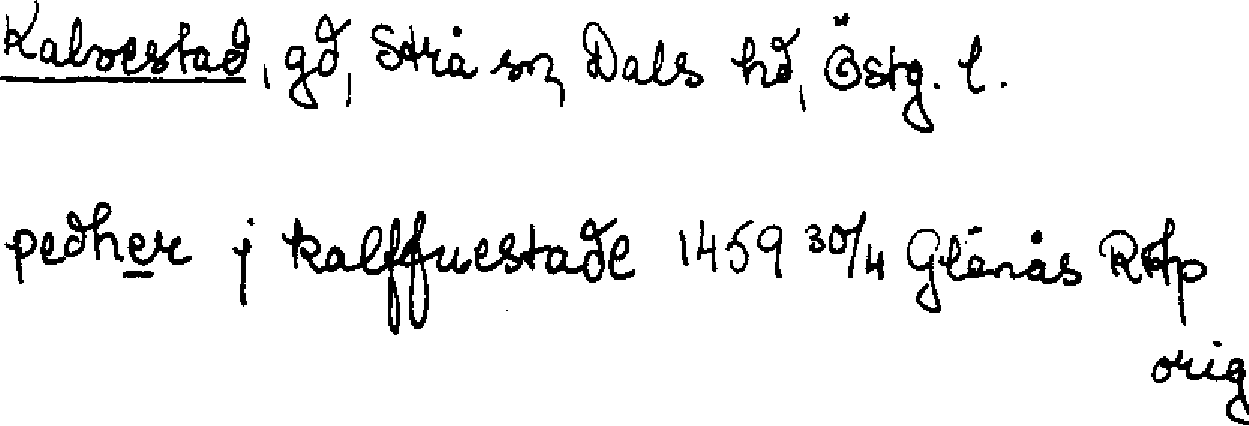 Kalvestad, gd, Strå sn, Dals hd, Östg. l.
pedher j kalffuestade 1459 30/4 Glänås RAp
orig